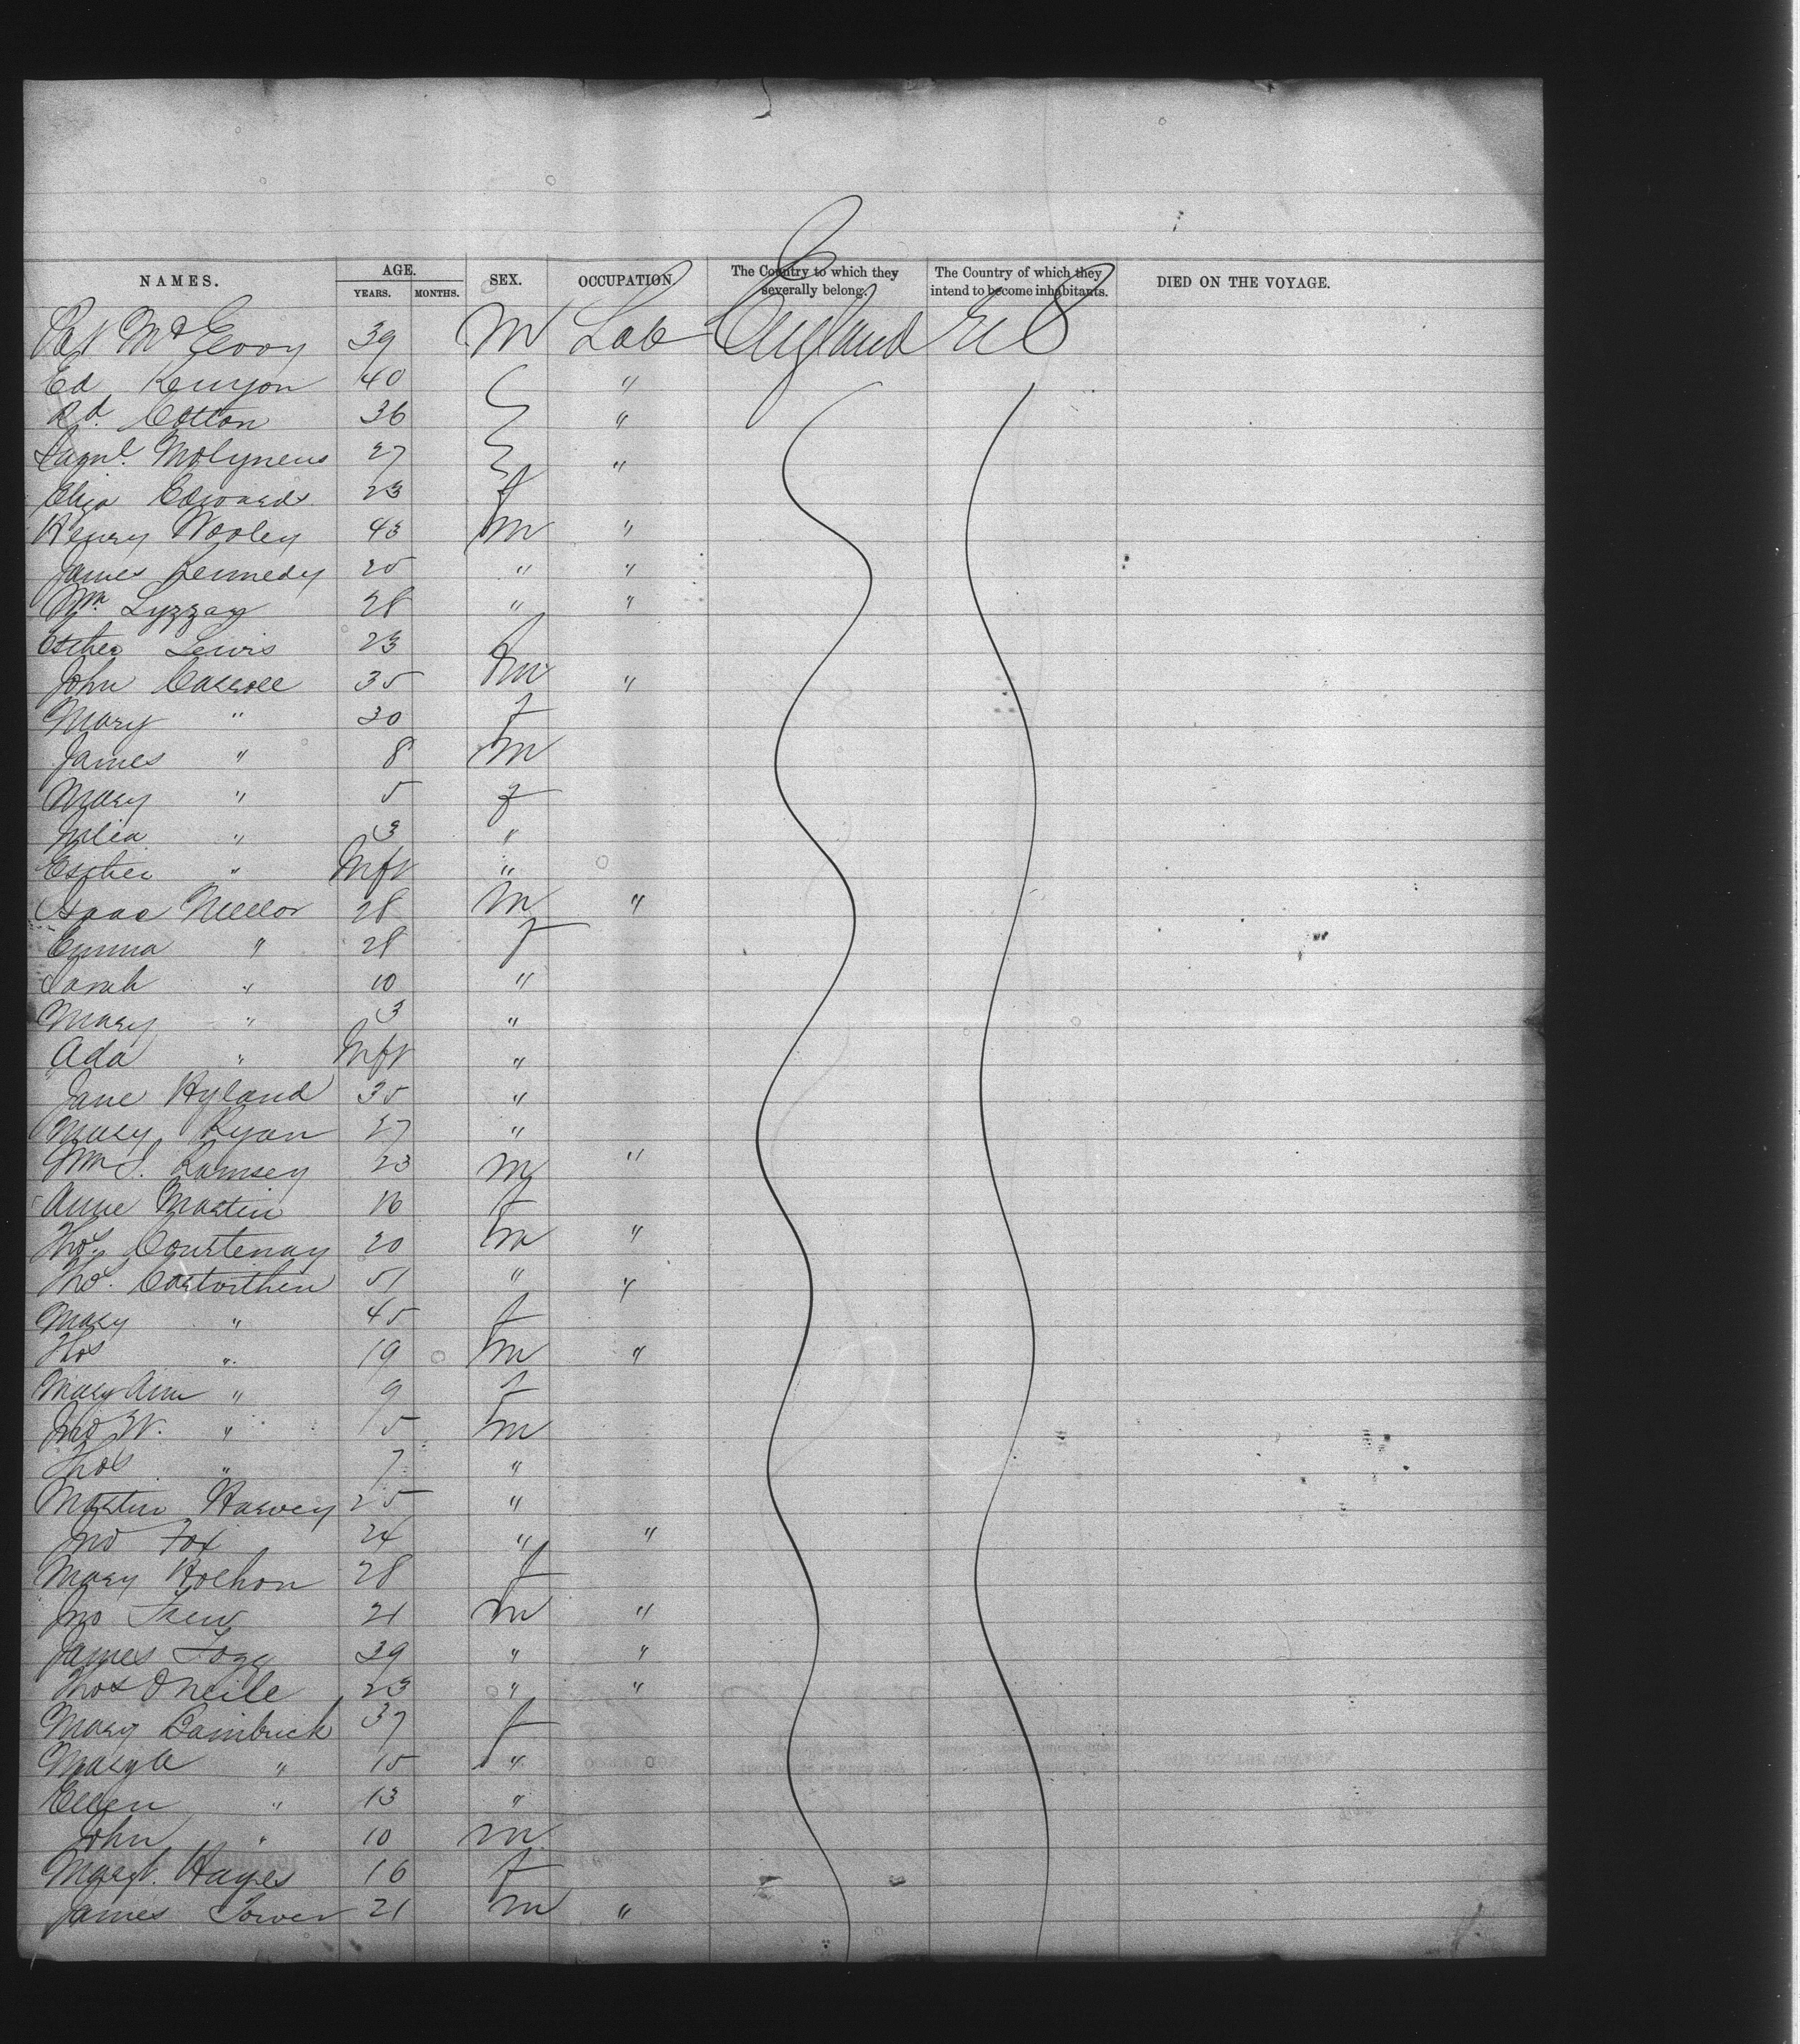 NAMES. AGE. YEARS. MONTHS. SEX. OCCUPATION. The Country to which they severally belong. The Country of which they intend to become inhabitants. DIED ON THE VOYAGE.
Pat McEvoy 39 M Lab England U S
Ed Kenyon 40 "
Rd. Cotton 36 "
Saml. Molyneus 27 "
Eliza Edwards 23 f
Henry Wooley 43 m "
James Kennedy 25 " "
Wm. Lyzzay 28 " "
Esther Lewis 23 f
John Carroll 35 m "
Mary " 30 f
James " 8 m
Mary " 5 f
Julia " 3 "
Esther " Inft "
Isaac Mellor 28 M "
Emma " 28 f
Sarah " 10 "
Mary " 3 "
Ada " Inft "
Jane Hyland 35 "
Mary Ryan 27 "
Wm S. Ramsey 23 m "
Anne Martin 16 f
Thos. Courtenay 20 m "
51 " "
Mary " 45 f
Thos " 19 m "
Mary Ann " 9 f
Jno W. " 5 m
Thos " 7 "
Martin Harvey 25 "
Jno Fox 24 " "
Mary 28 f
Jno 21 m "
James Fogg 39 " "
Thos O Neile 23 " "
Mary Bambrick 37 f
" 15 "
Ellen " 13 "
John " 10 m
Margt. Hayes 16 f
James Tower 21 m "